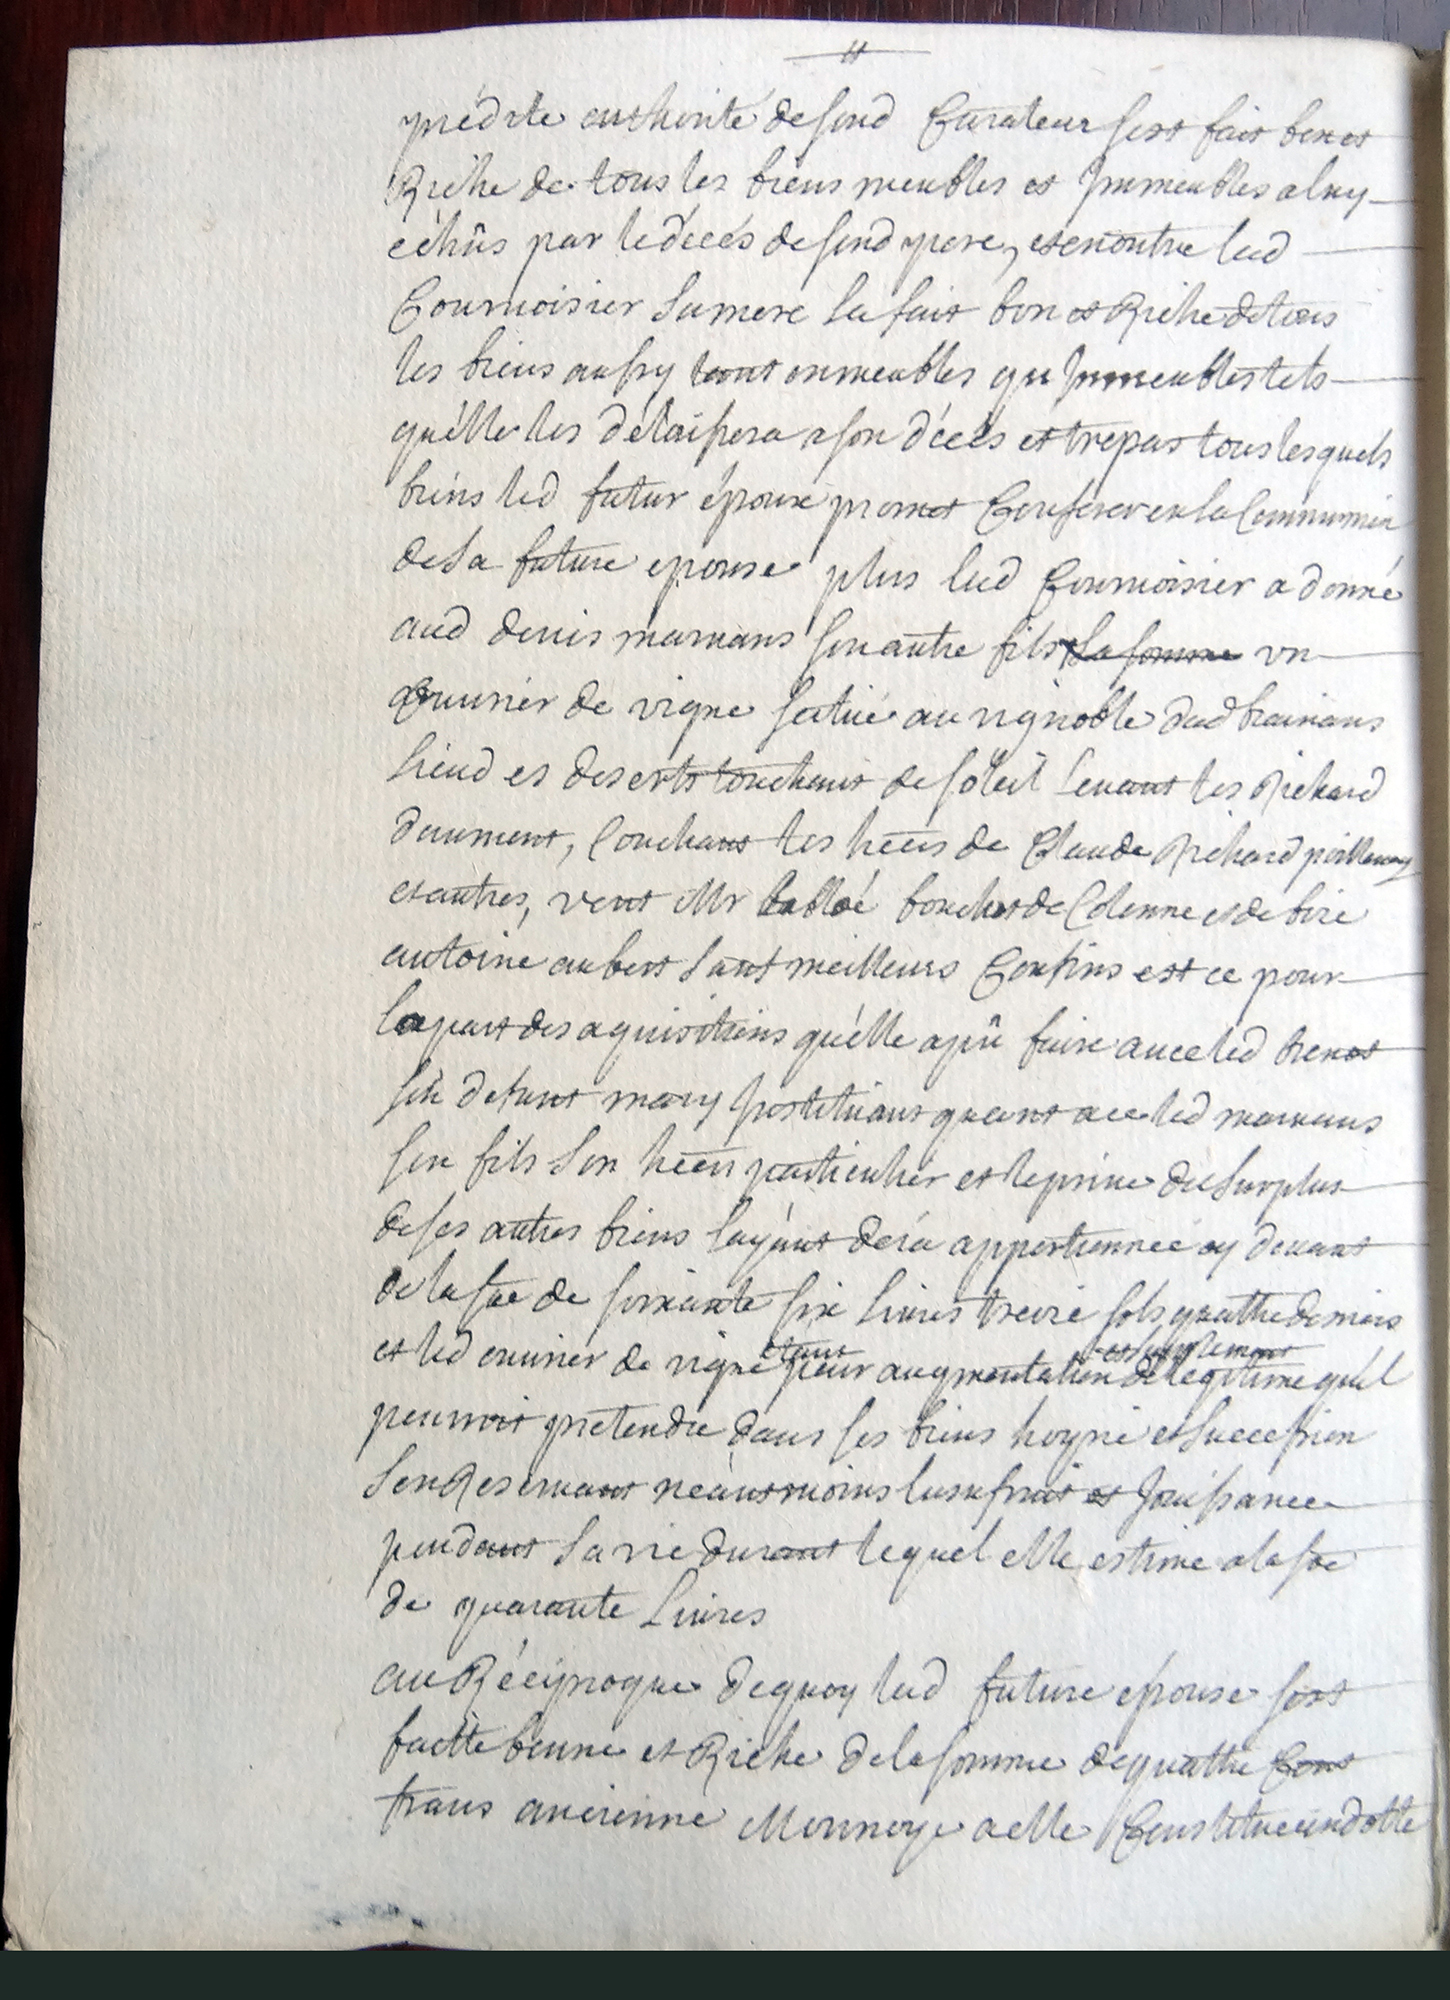 prédite authorité de sond Curateur sest fait bon et
Riche de tous les biens meubles et Immeubles a luy
échûs par le décés de sond pere, et en outre lad
Cournoisier sa mere la fait bon et Riche de tous
les biens aussy tant en meubles qu Immeubles tels
quélle les délaissera a son décés et trepas tous lesquels
biens led futur époux promet Conferer en la Communion
de sa future epouse plus lad Cournoisier a donné
aud denis mamans son autre fils la somme un
ouurier de vigne scitué au vignoble dud brainans
lieud es deserts touchant de soleil leuant les Richard
daumont, Couchant les héers de Claude Richard
et autres, vent Mr bouchet de Colonne et de bize
antoine aubert sauf meilleurs Confins est ce pour
la part des aquisitions quélle a pû faire auec led benoit
son défunt mary Instituant quant a ce led mamans
son fils son héer particulier et le priue du surplus
de ses autres biens layant déia apportionné cy deuant
de la soe de soixante six liures treize sols quatre deniers
et led ouurier de vigne pour augmentation de legitime quil
étant et suplement
pouuoit pretendre dans ses biens hoyrie et succession
sen Reseruant néantmoins lusufruit et Jouissance
pendant sa vie durant lequel elle estime a la soe
de quarante liures
au Réciproque de quoy lad future épouse sest
faitte bonne et Riche de la somme de quattre Cent
frans ancienne Monnoye a elle Constituée en dotte